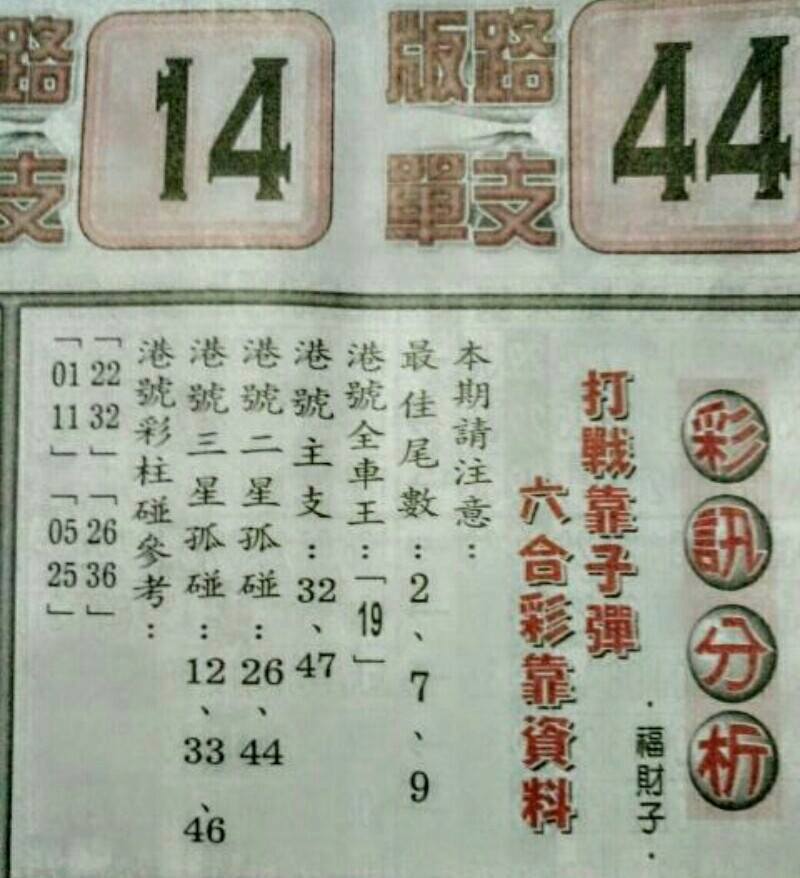 版路
單支
44
路
支
14
彩訊分析
·福財子·
打戰靠子彈
六合彩靠資料
本期請注意：
最佳尾數：2、7、9
港號全車王：「19」
港號主支：32、47
港號二星孤碰：26、44
港號三星孤碰：12、33、46
港號彩柱碰參考：
「22 32」「26 36」
「01 11」「05 25」